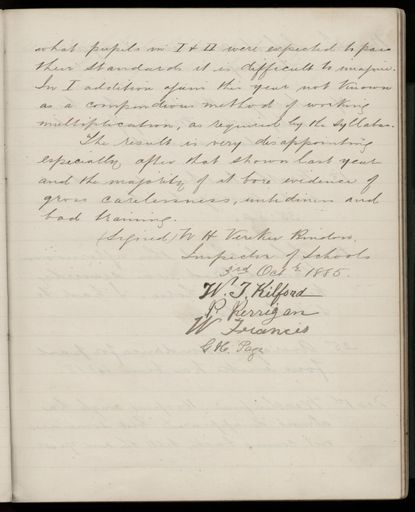 what pupils in I & II were expected to pass
their standards it is difficult to imagine.
In I addition again this year not known
as a compendious method of working
multiplication, as required by the syllabus.
The result is very disappointing
especially after that shown last year
and the majority of it bore evidence of
gross carelessness, untidiness and
bad training.
(Signed) W H Vereker Bindon.
Inspector of Schools
3rd Octr 1885.
W. J. Kilford
P. Kerrigan
W Francis
G. H. Page